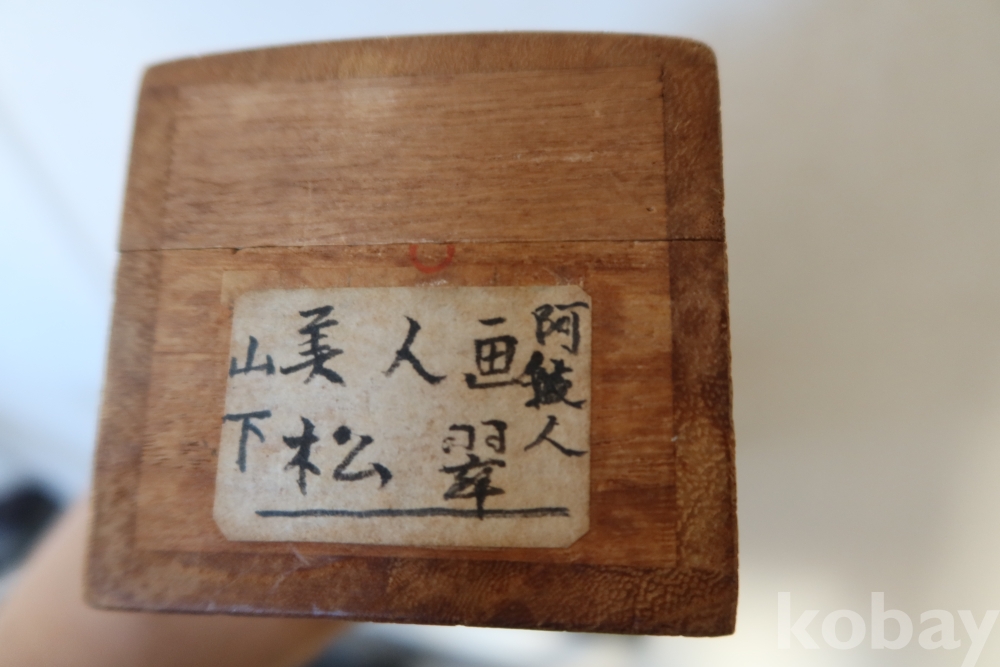 美人画
山下松翠
阿 人
kobay